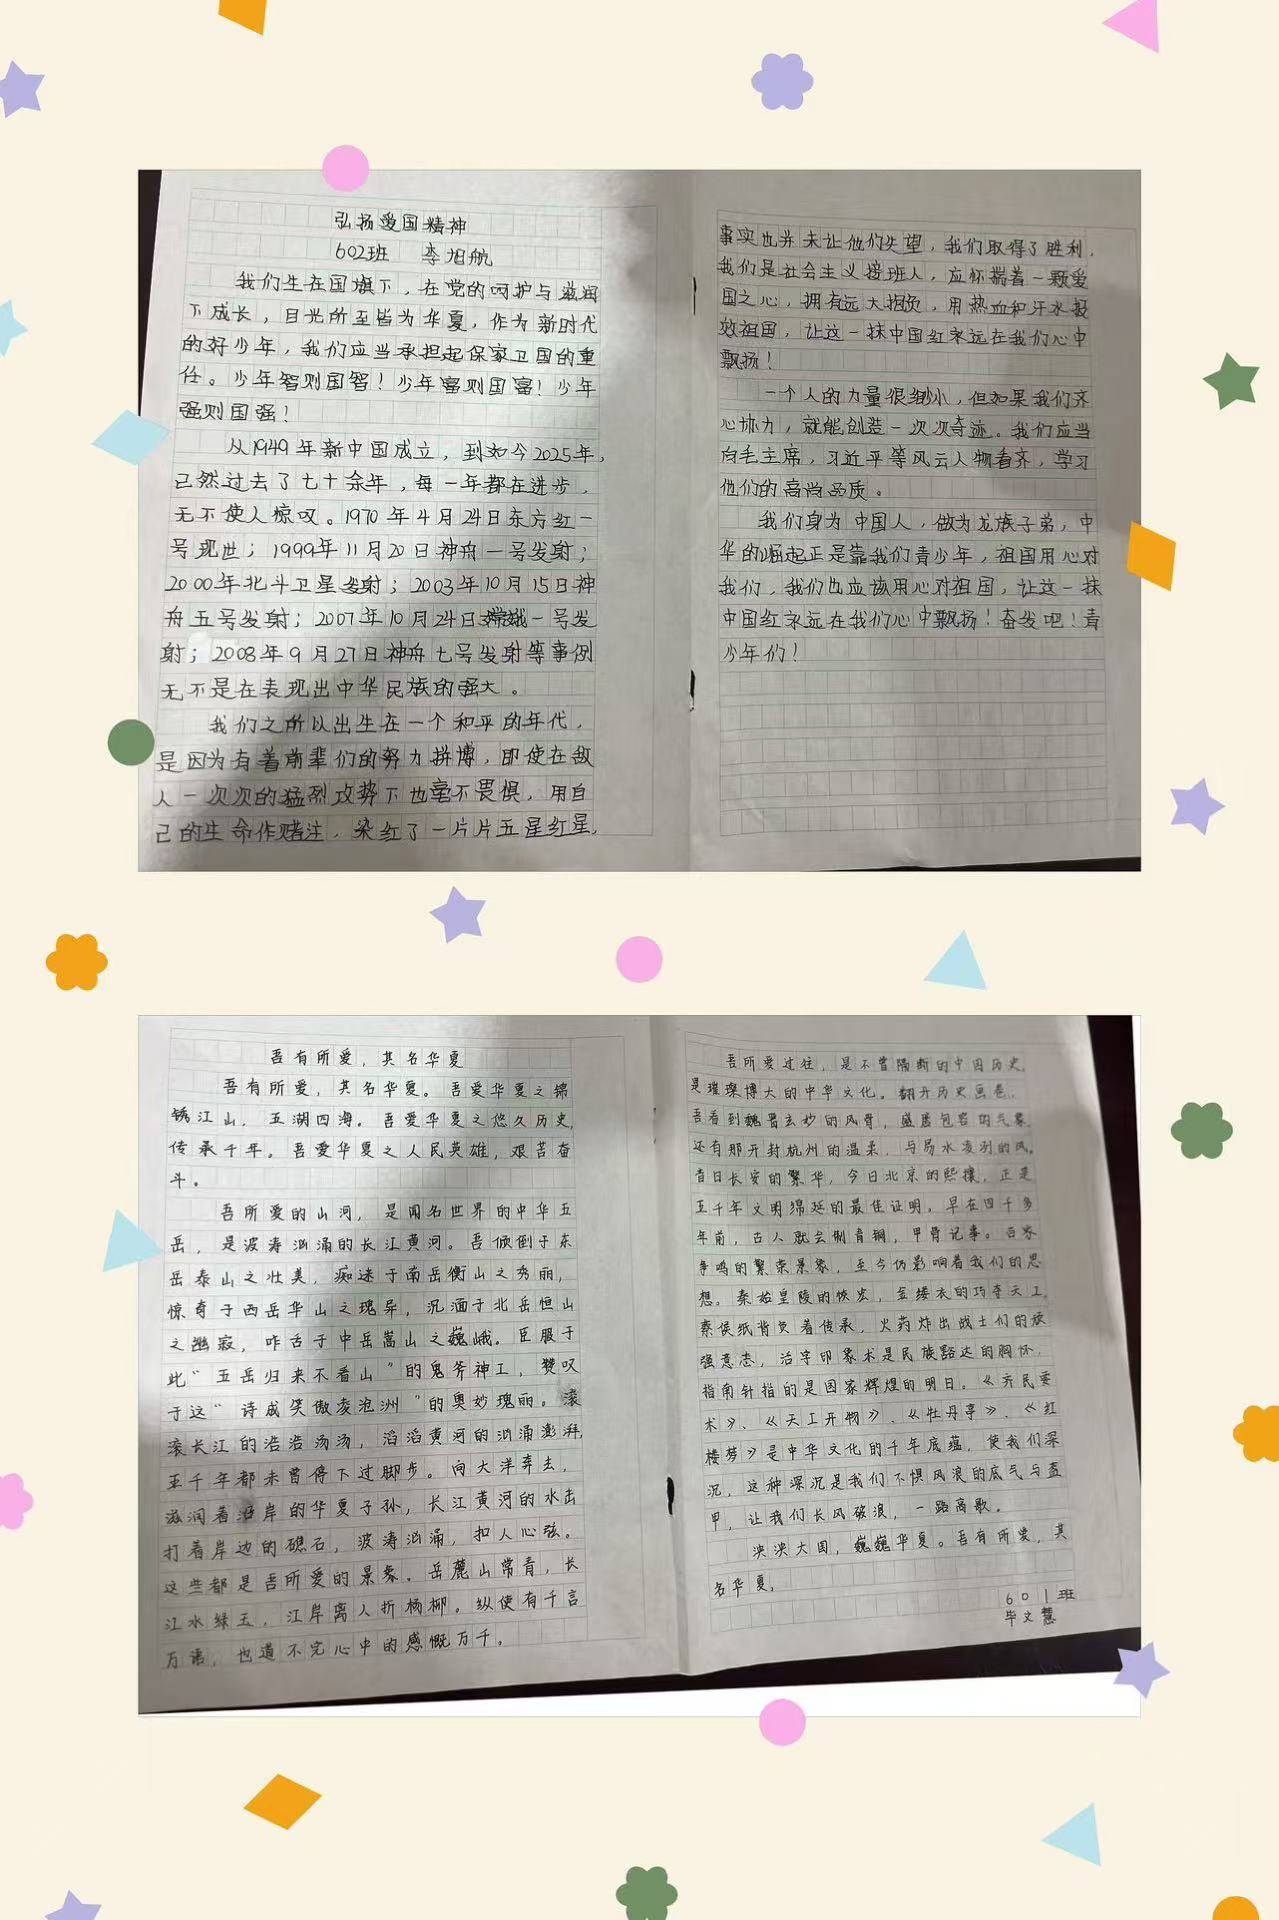 弘扬爱国精神
602班 李旭航
我们生在国旗下，在党的呵护与滋润
下成长，目光所至皆为华夏，作为新时代
的好少年，我们应当承担起保家卫国的重
任。少年智则国智！少年富则国富！少年
强则国强！
从1949年新中国成立，到如今2025年，
已然过去了七十余年，每一年都在进步，
无不使人惊叹。1970年4月24日东方红一
号现世；1999年11月20日神舟一号发射；
2000年北斗卫星发射；2003年10月15日神
舟五号发射；2007年10月24日嫦娥一号发
射；2008年9月27日神舟七号发射等事例
无不是在表现出中华民族的强大。
我们之所以出生在一个和平的年代，
是因为有着前辈们的努力拼博，即使在敌
人一次次的猛烈攻势下也毫不畏惧，用自
己的生命作赌注，染红了一片片五星红星，
事实也并未让他们失望，我们取得了胜利，
我们是社会主义接班人，应怀揣着一颗爱
国之心，拥有远大抱负，用热血和汗水报
效祖国，让这一抹中国红永远在我们心中
飘扬！
一个人的力量很渺小，但如果我们齐
心协力，就能创造一次次奇迹。我们应当
向毛主席，习近平等风云人物看齐，学习
他们的高尚品质。
我们身为中国人，做为龙族子弟，中
华的崛起正是靠我们青少年，祖国用心对
我们，我们也应该用心对祖国，让这一抹
中国红永远在我们心中飘扬！奋发吧！青
少年们！
吾有所爱，其名华夏
吾有所爱，其名华夏。吾爱华夏之锦
锈江山，五湖四海。吾爱华夏之悠久历史，
传承千年。吾爱华夏之人民英雄，艰苦奋
斗。
吾所爱的山河，是闻名世界的中华五
岳，是波涛汹涌的长江黄河。吾倾倒于东
岳泰山之壮美，痴迷于南岳衡山之秀丽，
惊奇于西岳华山之瑰异，沉湎于北岳恒山
之幽寂，咋舌于中岳嵩山之巍峨。臣服于
此“五岳归来不看山”的鬼斧神工，赞叹
于这“诗成笑傲凌沧洲”的奥妙瑰丽。滚
滚长江的浩浩汤汤，滔滔黄河的汹涌澎湃，
五千年都未曾停下过脚步。向大洋奔去，
滋润着沿岸的华夏子孙，长江黄河的水击
打着岸边的礁石，波涛汹涌，扣人心弦。
这些都是吾所爱的景象。岳麓山常青，长
江水绿玉，江岸离人折杨柳。纵使有千言
万语，也道不完心中的感慨万千。
吾所爱过往，是不曾隔断的中国历史，
是璀璨博大的中华文化。翻开历史画卷，
吾看到魏晋玄妙的风骨，盛唐包容的气象，
还有那开封杭州的温柔，与易水凌冽的风。
昔日长安的繁华，今日北京的熙攘，正是
五千年文明绵延的最佳证明。早在四千多
年前，古人就会制青铜，甲骨记事。百家
争鸣的繁荣景象，至今仍影响着我们的思
想。秦始皇陵的恢宏，金缕衣的巧夺天工，
蔡侯纸背负着传承，火药炸出战士们的顽
强意志，活字印象术是民族豁达的胸怀，
指南针指的是国家辉煌的明日。《齐民要
术》、《天工开物》、《牡丹亭》、《红
楼梦》是中华文化的千年底蕴，使我们深
沉，这种深沉是我们不惧风浪的底气与盔
甲，让我们长风破浪，一路高歌。
泱泱大国，巍巍华夏。吾有所爱，其
名华夏。
601班
毕文慧